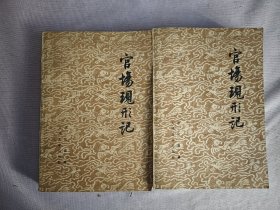 官場現形记
官場現形记